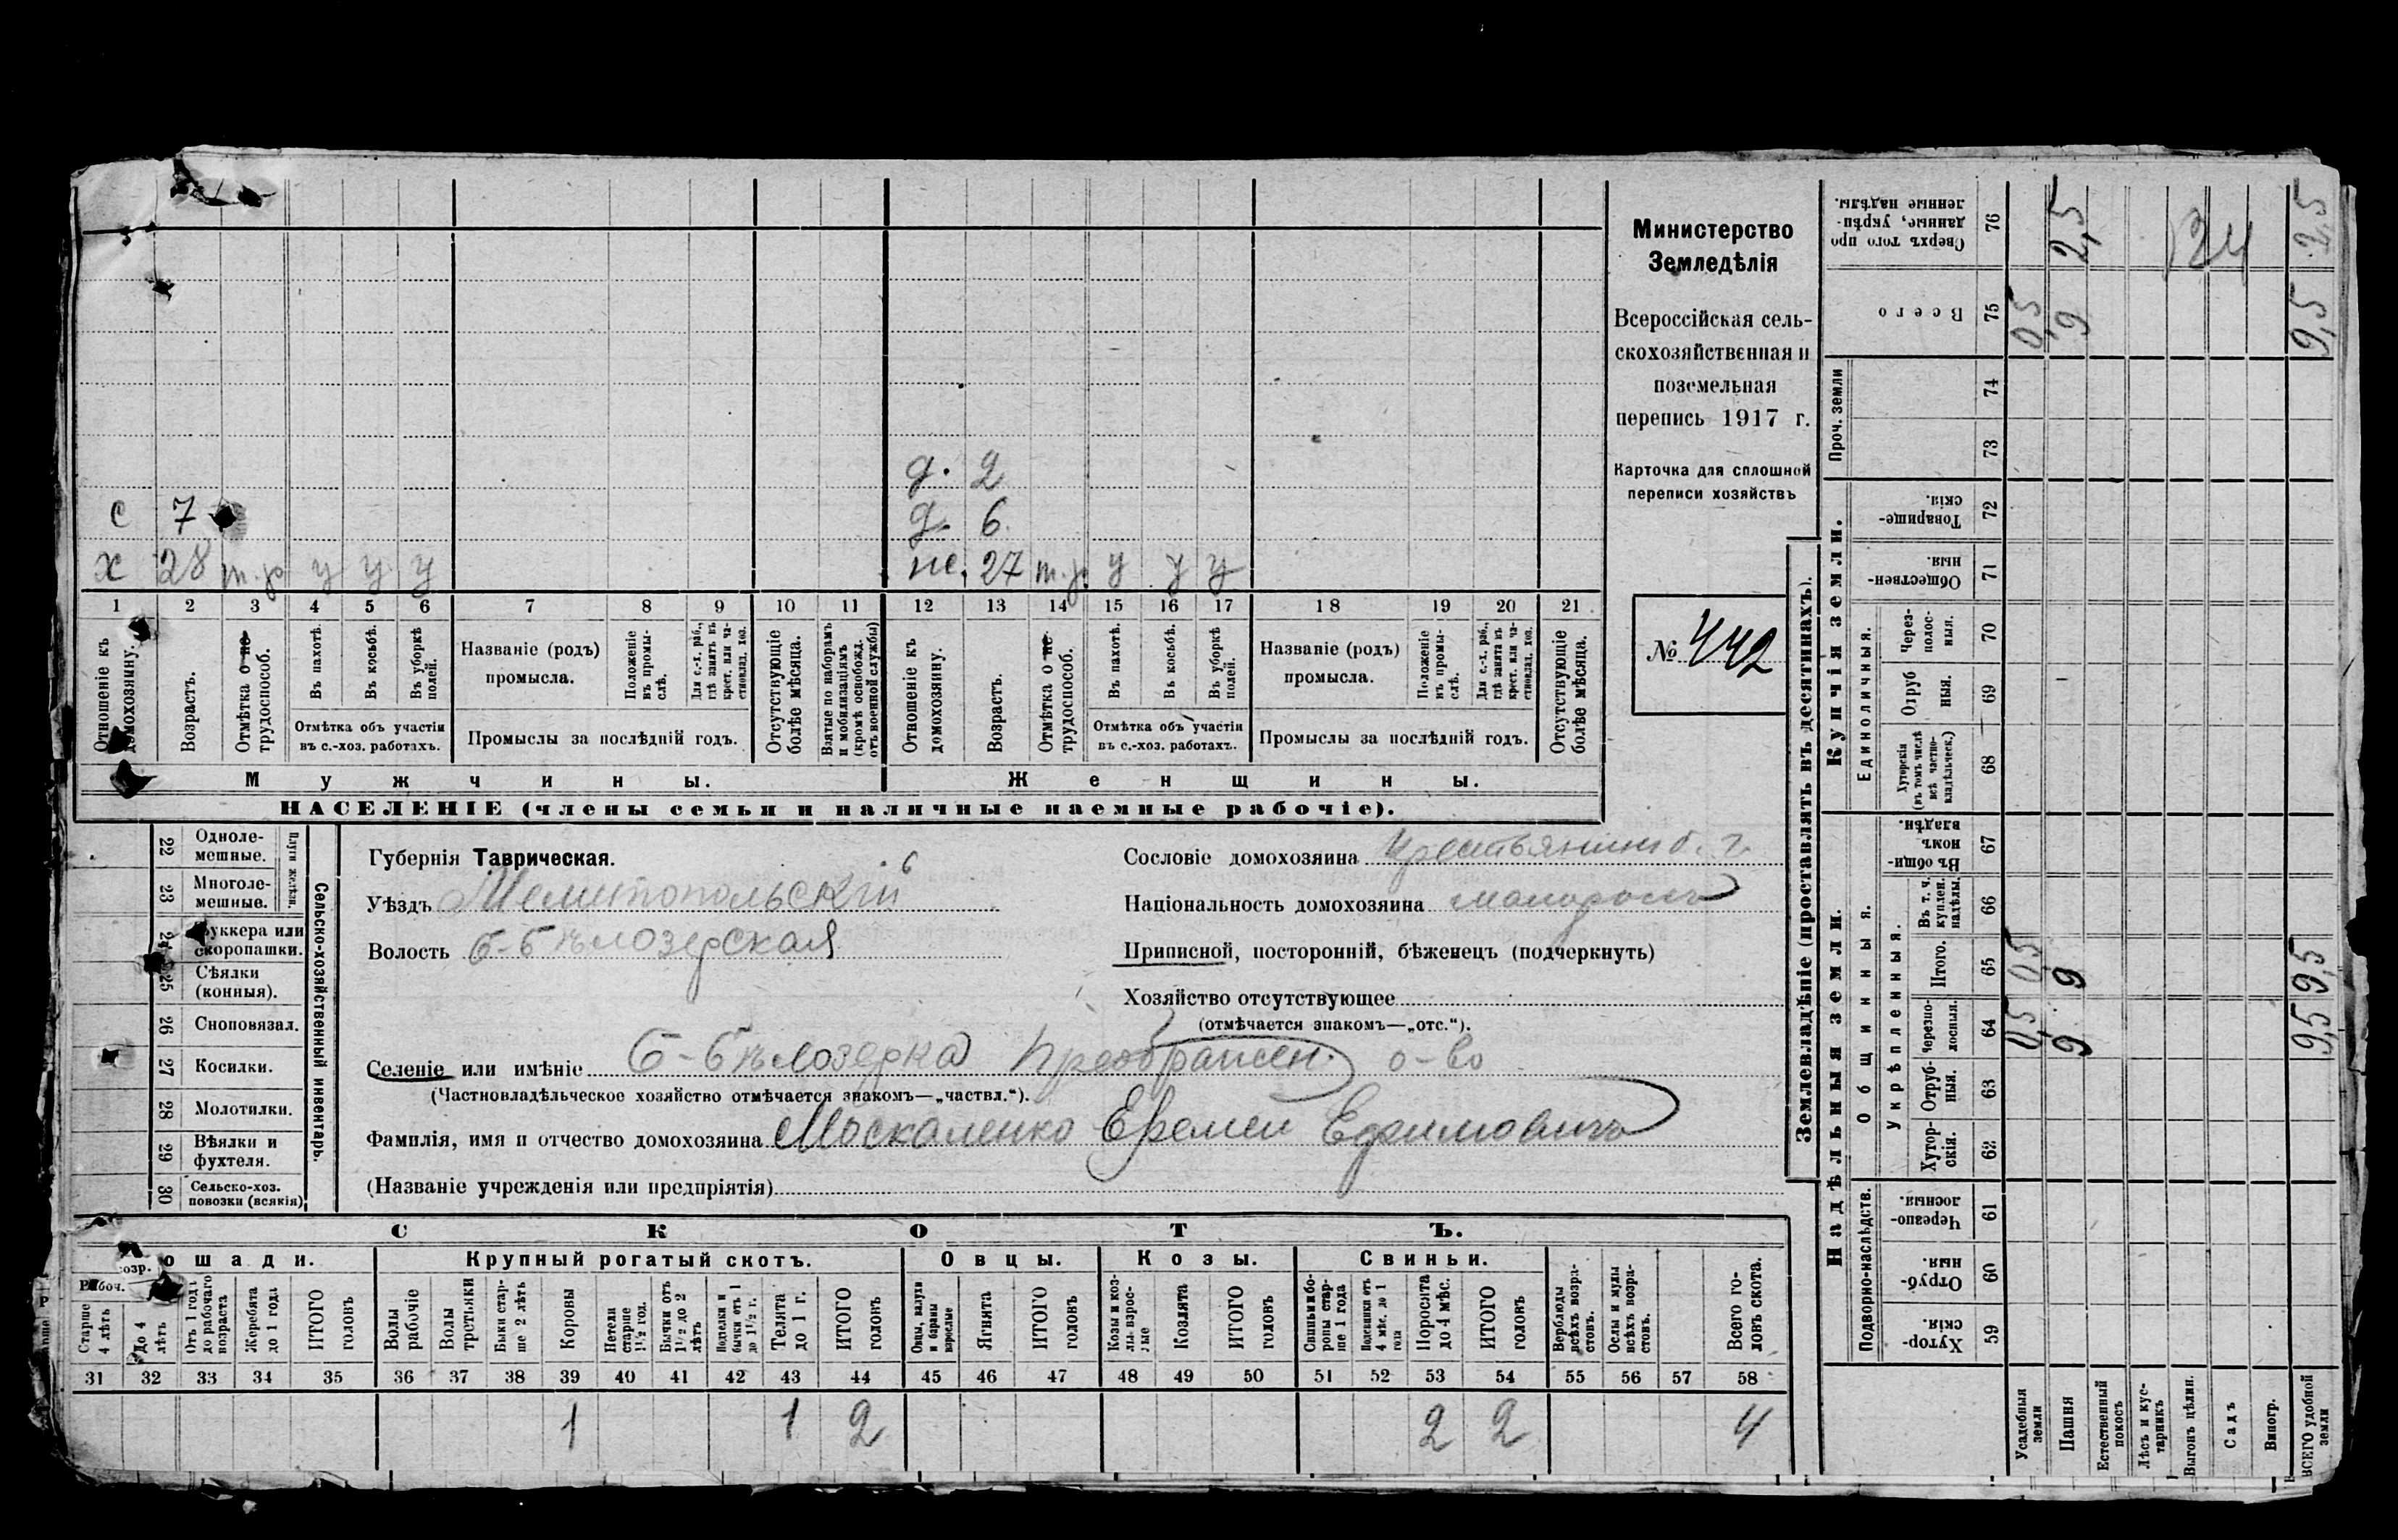 Министерство
Земледѣлія
Всероссійская сель-
скохозяйственная и
поземельная
перепись 1917 г.
Карточка для сплошной
переписи хозяйствъ
№ 442
д. 2
с 7
д. 6
х 28 т.р у у у
же. 27 т.р. у у у
1 2 3 4 5 6 7 8 9 10 11 12 13 14 15 16 17 18 19 20 21
Отношеніе къ домохозяину.
Возрастъ.
Отмѣтка о не-
трудоспособ.
Въ пахотѣ.
Въ косьбѣ.
Въ уборкѣ полей.
Отмѣтка объ участіи
въ с.-хоз. работахъ.
Названіе (родъ)
промысла.
Положеніе въ промы-слѣ.
Для с.-х. раб., гдѣ занятъ въ крест. или ча-стновлад. хоз.
Промыслы за послѣдній годъ.
Отсутствующіе болѣе мѣсяца.
Взятые по наборамъ и мобилизаціямъ (кромѣ освобожд. отъ военной службы)
Отношеніе къ домохозяину.
Возрастъ.
Отмѣтка о не-
трудоспособ.
Въ пахотѣ.
Въ косьбѣ.
Въ уборкѣ полей.
Отмѣтка объ участіи
въ с.-хоз. работахъ.
Названіе (родъ)
промысла.
Положеніе въ промы-слѣ.
Для с.-х. раб., гдѣ занята въ крест. или ча-стновлад. хоз.
Промыслы за послѣдній годъ.
Отсутствующіе болѣе мѣсяца.
Мужчины. Женщины.
НАСЕЛЕНІЕ (члены семьи и наличные наемные рабочіе).
22 Одноле-
мешные.
23 Многоле-
мешные.
Плуги желѣзн.
24 Буккера или
скоропашки.
25 Сѣялки
(конныя).
26 Сноповязал.
27 Косилки.
28 Молотилки.
29 Вѣялки и
фухтеля.
30 Сельско-хоз.
повозки (всякія)
Сельско-хозяйственный инвентарь.
Губернія Таврическая.
Уѣздъ Мелитопольскій
Волость Б-Бѣлозерская
Сословіе домохозяина крестьянинъ
Національность домохозяина малороссъ
Приписной, посторонній, бѣженецъ (подчеркнуть)
Хозяйство отсутствующее
(отмѣчается знакомъ—„отс.“).
Селеніе или имѣніе Б-Бѣлозерка Преображен. о-во
(Частновладѣльческое хозяйство отмѣчается знакомъ—„частвл.“).
Фамилія, имя и отчество домохозяина Москаленко Ефремъ Ефимовичъ
(Названіе учрежденія или предпріятія)
СКОТЪ.
ошади. Крупный рогатый скотъ. Овцы. Козы. Свиньи.
Рабоч. озр.
Старше 4 лѣтъ
До 4 лѣтъ
Отъ 1 года до рабочаго возраста
Жеребята до 1 года
ИТОГО головъ
Волы рабочіе
Волы третьяки
Быки стар-ше 2 лѣтъ
Коровы
Нетели старше 1½ год.
Бычки отъ 1½ до 2 лѣтъ
Подтелки и бычки отъ 1 до 1½ г.
Телята до 1 г.
ИТОГО головъ
Овцы, валухи и бараны взрослые
Ягнята
ИТОГО головъ
Козы и коз-лы взрос-лые
Козлята
ИТОГО головъ
Свиньи и бо-ровы стар-ше 1 года
Подсвинки отъ 4 мѣс. до 1 года
Поросята до 4 мѣс.
ИТОГО головъ
Верблюды всѣхъ возра-стовъ.
Ослы и мулы всѣхъ возра-стовъ.
Всего го-ловъ скота.
31 32 33 34 35 36 37 38 39 40 41 42 43 44 45 46 47 48 49 50 51 52 53 54 55 56 57 58
1 1 2 2 2 4
Землевладѣніе (проставлять въ десятинахъ).
Надѣльныя земли. Купчія земли. Проч. земли
Подворно-наслѣдств. Общинныя. Укрѣпленныя. Единоличныя.
Сверхъ того про-
данные, укрѣп-
ленные надѣлы. 76 2,5 2,5
24
Всего 75 0,5 9 9,5
74
73
Товарище-
скія. 72
Обществен-
ныя. 71
Через-
полос-
ныя. 70
Отруб
ныя. 69
Хуторскія
(въ томъ числѣ
всѣ частно-
владѣльческ.) 68
Въ общин-
номъ
владѣн. 67
Въ т. ч.
куплен.
надѣлы. 66
Итого. 65 0,5 9 9,5
Черезпо-
лосныя. 64 0,5 9 9,5
Отруб-
ныя. 63
Хутор-
скія. 62
Черезпо-
лосныя. 61
Отруб-
ныя. 60
Хутор-
скія. 59
Усадебныя
земли
Пашня
Естественный
покосъ
Лѣсъ и кус-
тарникъ
Выгонъ цѣлин.
Садъ
Виногр.
ВСЕГО удобной
земли